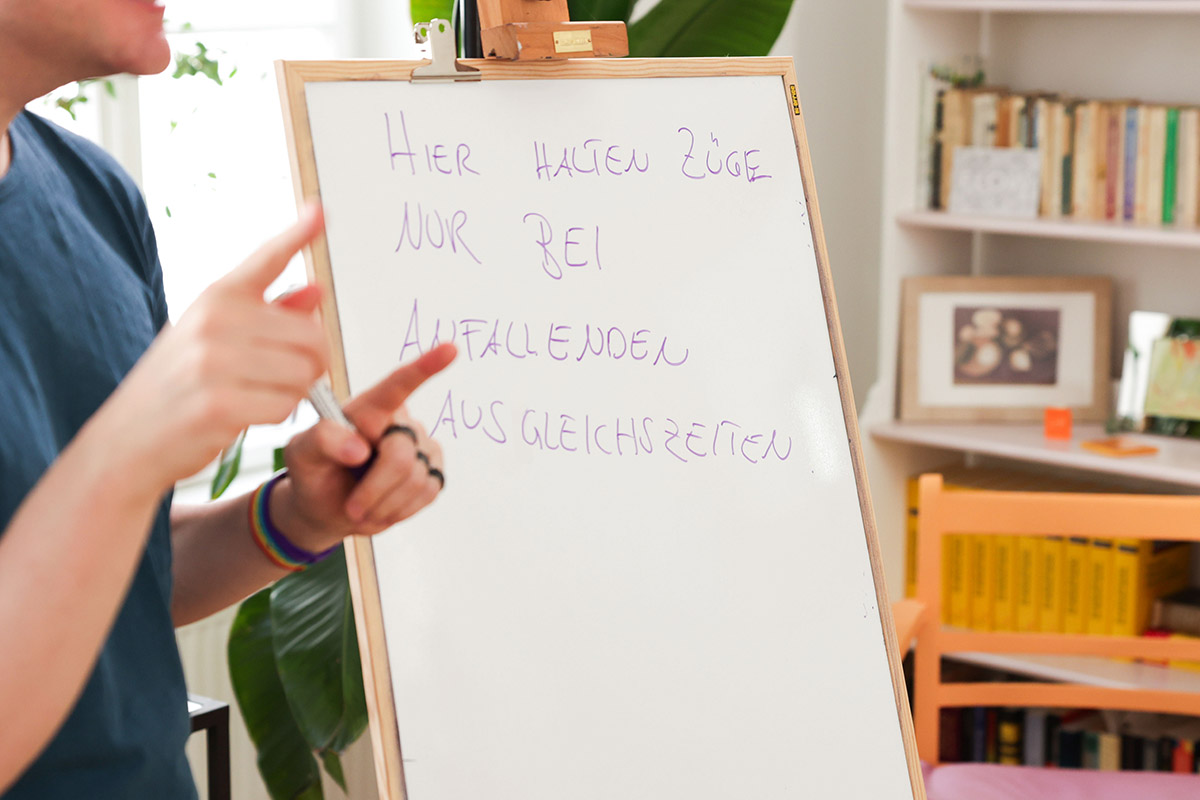 HIER HALTEN ZÜGE
NUR BEI
ANFALLENDEN
AUSGLEICHSZEITEN